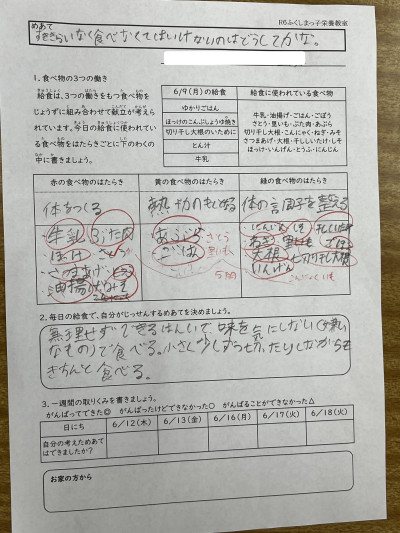 R6ふくしまっ子栄養教室
めあて
すききらいなく食べなくてはいけないのはどうしてかな。
1．食べ物の3つの働き
給食は、3つの働きをもつ食べ物を
じょうずに組み合わせて献立が考えら
れています。今日の給食に使われてい
る食べ物をはたらきごとに下のわくの
中に書きましょう。
6/9(月)の給食
給食に使われている食べ物
ゆかりごはん
ほっけのこんぶしょうゆ焼き
切り干し大根のいために
とん汁
牛乳
牛乳・油揚げ・ごはん・ごぼう
さとう・里いも・ぶた肉・あぶら
切り干し大根・こんにゃく・ねぎ・みそ
さつまあげ・大根・干ししいたけ・しそ
ほっけ・いんげん・とうふ・にんじん
赤の食べ物のはたらき
黄の食べ物のはたらき
緑の食べ物のはたらき
体をつくる
体の調子を整える
牛乳 ぶた肉
ほっけ
さつまあげ
油揚げ みそ
あぶら
ごはん
さとう
里いも
にんじん しそ
干ししいたけ
ねぎ
ごぼう
大根
切り干し大根
いんげん
2．毎日の給食で、自分がじっせんするめあてを決めましょう。
無理せずできるはんいで味を気にしない
なもの)で食べる。小さく少しずつ切ったりしながらも
きちんと食べる。
3．一週間の取りくみを書きましょう。
がんばってできた◎ がんばったけどできなかった○ がんばることができなかった△
日にち
6/12(木)
6/13(金)
6/16(月)
6/17(火)
6/18(火)
自分の考えためあて
はできましたか？
お家の方から